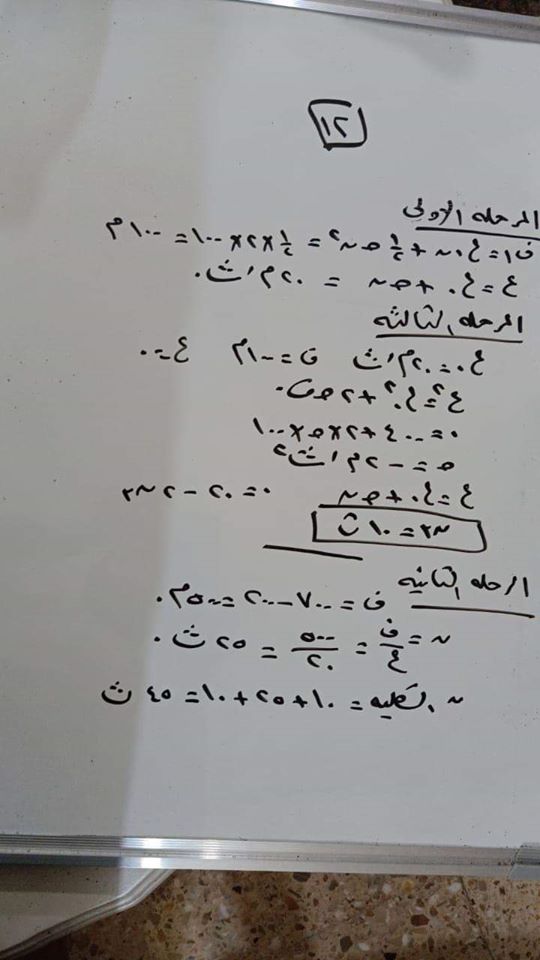 ١٢
المرحله الاولى
ف١ = ع.ن + ١/٢ حـ ن٢ = ١/٢ ×٢×١٠٠ = ١٠٠ م
ع = ع. + حـ ن = ٢٠ م/ث.
المرحله الثالثه
ع. = ٢٠ م/ث ف = ١٠٠ م ع = ٠
ع٢ = ع.٢ + ٢ حـ ف.
٠ = ٤٠٠ + ٢ × حـ × ١٠٠
حـ = -٢ م/ث٢
ع = ع. + حـ ن ٠ = ٢٠ - ٢ ن٣
ن٣ = ١٠ ث
المرحله الثانيه
ف = ٧٠٠ - ٢٠٠ = ٥٠٠ م.
ن = ف/ع = ٥٠٠/٢٠ = ٢٥ ث.
ن الكليه = ١٠ + ٢٥ + ١٠ = ٤٥ ث